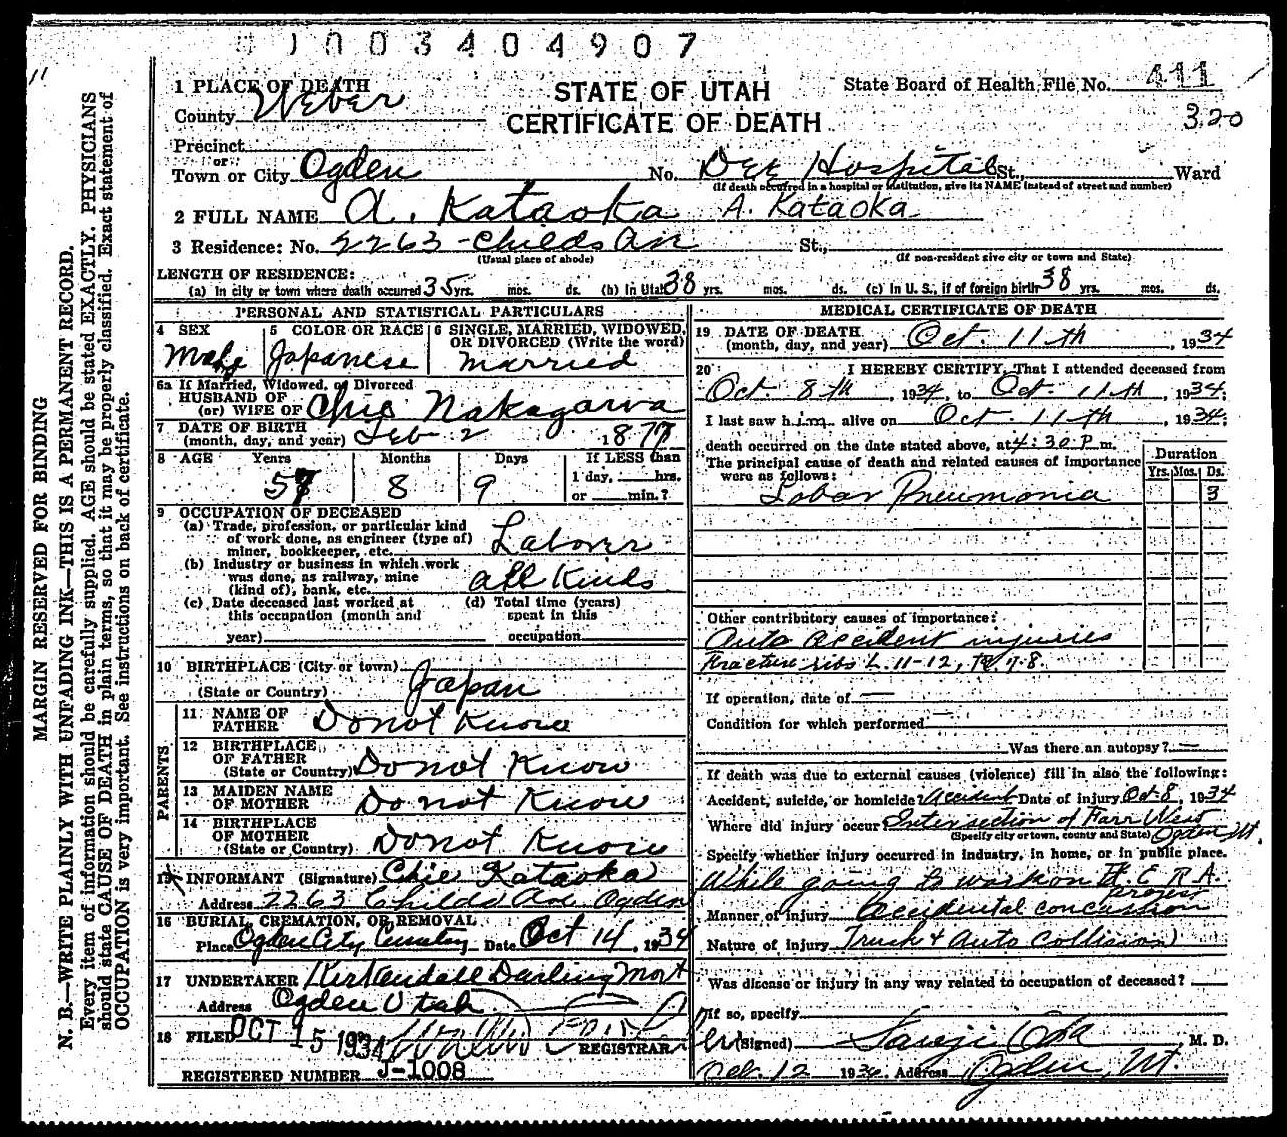 1003404907
11
MARGIN RESERVED FOR BINDING
N. B.—WRITE PLAINLY WITH UNFADING INK—THIS IS A PERMANENT RECORD.
Every item of information should be carefully supplied. AGE should be stated EXACTLY. PHYSICIANS
should state CAUSE OF DEATH in plain terms, so that it may be properly classified. Exact statement of
OCCUPATION is very important. See instructions on back of certificate.
1 PLACE OF DEATH
County Weber
STATE OF UTAH
CERTIFICATE OF DEATH
State Board of Health File No. 411
320
Precinct
or
Town or City Ogden No. Dee Hospital St., Ward
(If death occurred in a hospital or institution, give its NAME instead of street and number)
2 FULL NAME A. Kataoka A. Kataoka
3 Residence: No. 2263 - Childs Av St.,
(Usual place of abode) (If non-resident give city or town and State)
LENGTH OF RESIDENCE:
(a) In city or town where death occurred 35 yrs. mos. ds. (b) In Utah 38 yrs. mos. ds. (c) In U. S., if of foreign birth 38 yrs. mos. ds.
PERSONAL AND STATISTICAL PARTICULARS
4 SEX Male
5 COLOR OR RACE Japanese
6 SINGLE, MARRIED, WIDOWED, OR DIVORCED (Write the word) Married
6a If Married, Widowed, or Divorced
HUSBAND OF
(or) WIFE OF Chie Nakagawa
7 DATE OF BIRTH
(month, day, and year) Feb 2 1877
8 AGE Years Months Days If LESS than
57 8 9 1 day, hrs.
or min.?
9 OCCUPATION OF DECEASED
(a) Trade, profession, or particular kind
of work done, as engineer (type of)
miner, bookkeeper, etc. Laborer
(b) Industry or business in which work
was done, as railway, mine
(kind of), bank, etc. all Kinds
(c) Date deceased last worked at
this occupation (month and
year)
(d) Total time (years)
spent in this
occupation
10 BIRTHPLACE (City or town)
(State or Country) Japan
PARENTS
11 NAME OF
FATHER Do not Know
12 BIRTHPLACE
OF FATHER
(State or Country) Do not Know
13 MAIDEN NAME
OF MOTHER Do not Know
14 BIRTHPLACE
OF MOTHER
(State or Country) Do not Know
15 INFORMANT (Signature) Chie Kataoka
Address 2263 Childs Ave Ogden
16 BURIAL, CREMATION, OR REMOVAL
Place Ogden City Cemetery Date Oct 14, 1934
17 UNDERTAKER Kirkendall Darling Mort
Address Ogden Utah
18 FILED OCT 15 1934
REGISTRAR
REGISTERED NUMBER J-1008
MEDICAL CERTIFICATE OF DEATH
19 DATE OF DEATH
(month, day, and year) Oct. 11th, 1934
20 I HEREBY CERTIFY, That I attended deceased from
Oct. 8th, 1934, to Oct. 11th, 1934;
I last saw him alive on Oct. 11th, 1934;
death occurred on the date stated above, at 4:30 P m.
The principal cause of death and related causes of importance
were as follows:
Duration
Yrs. Mos. Ds.
Lobar Pneumonia 3
Other contributory causes of importance:
Auto accident injuries
Fracture ribs L. 11-12, R. 7-8.
If operation, date of —
Condition for which performed —
Was there an autopsy? —
If death was due to external causes (violence) fill in also the following:
Accident, suicide, or homicide? Accident Date of injury Oct-8, 1934
Where did injury occur Intersection of Farr West
(Specify city or town, county and State) Ogden Ut.
Specify whether injury occurred in industry, in home, or in public place.
While going to work on F. E. R. A.
project
Manner of injury Accidental concussion
Nature of Injury Truck & Auto Collision
Was disease or injury in any way related to occupation of deceased?
If so, specify
(Signed) M. D.
Oct. 12 1934. Address Ogden, Ut.